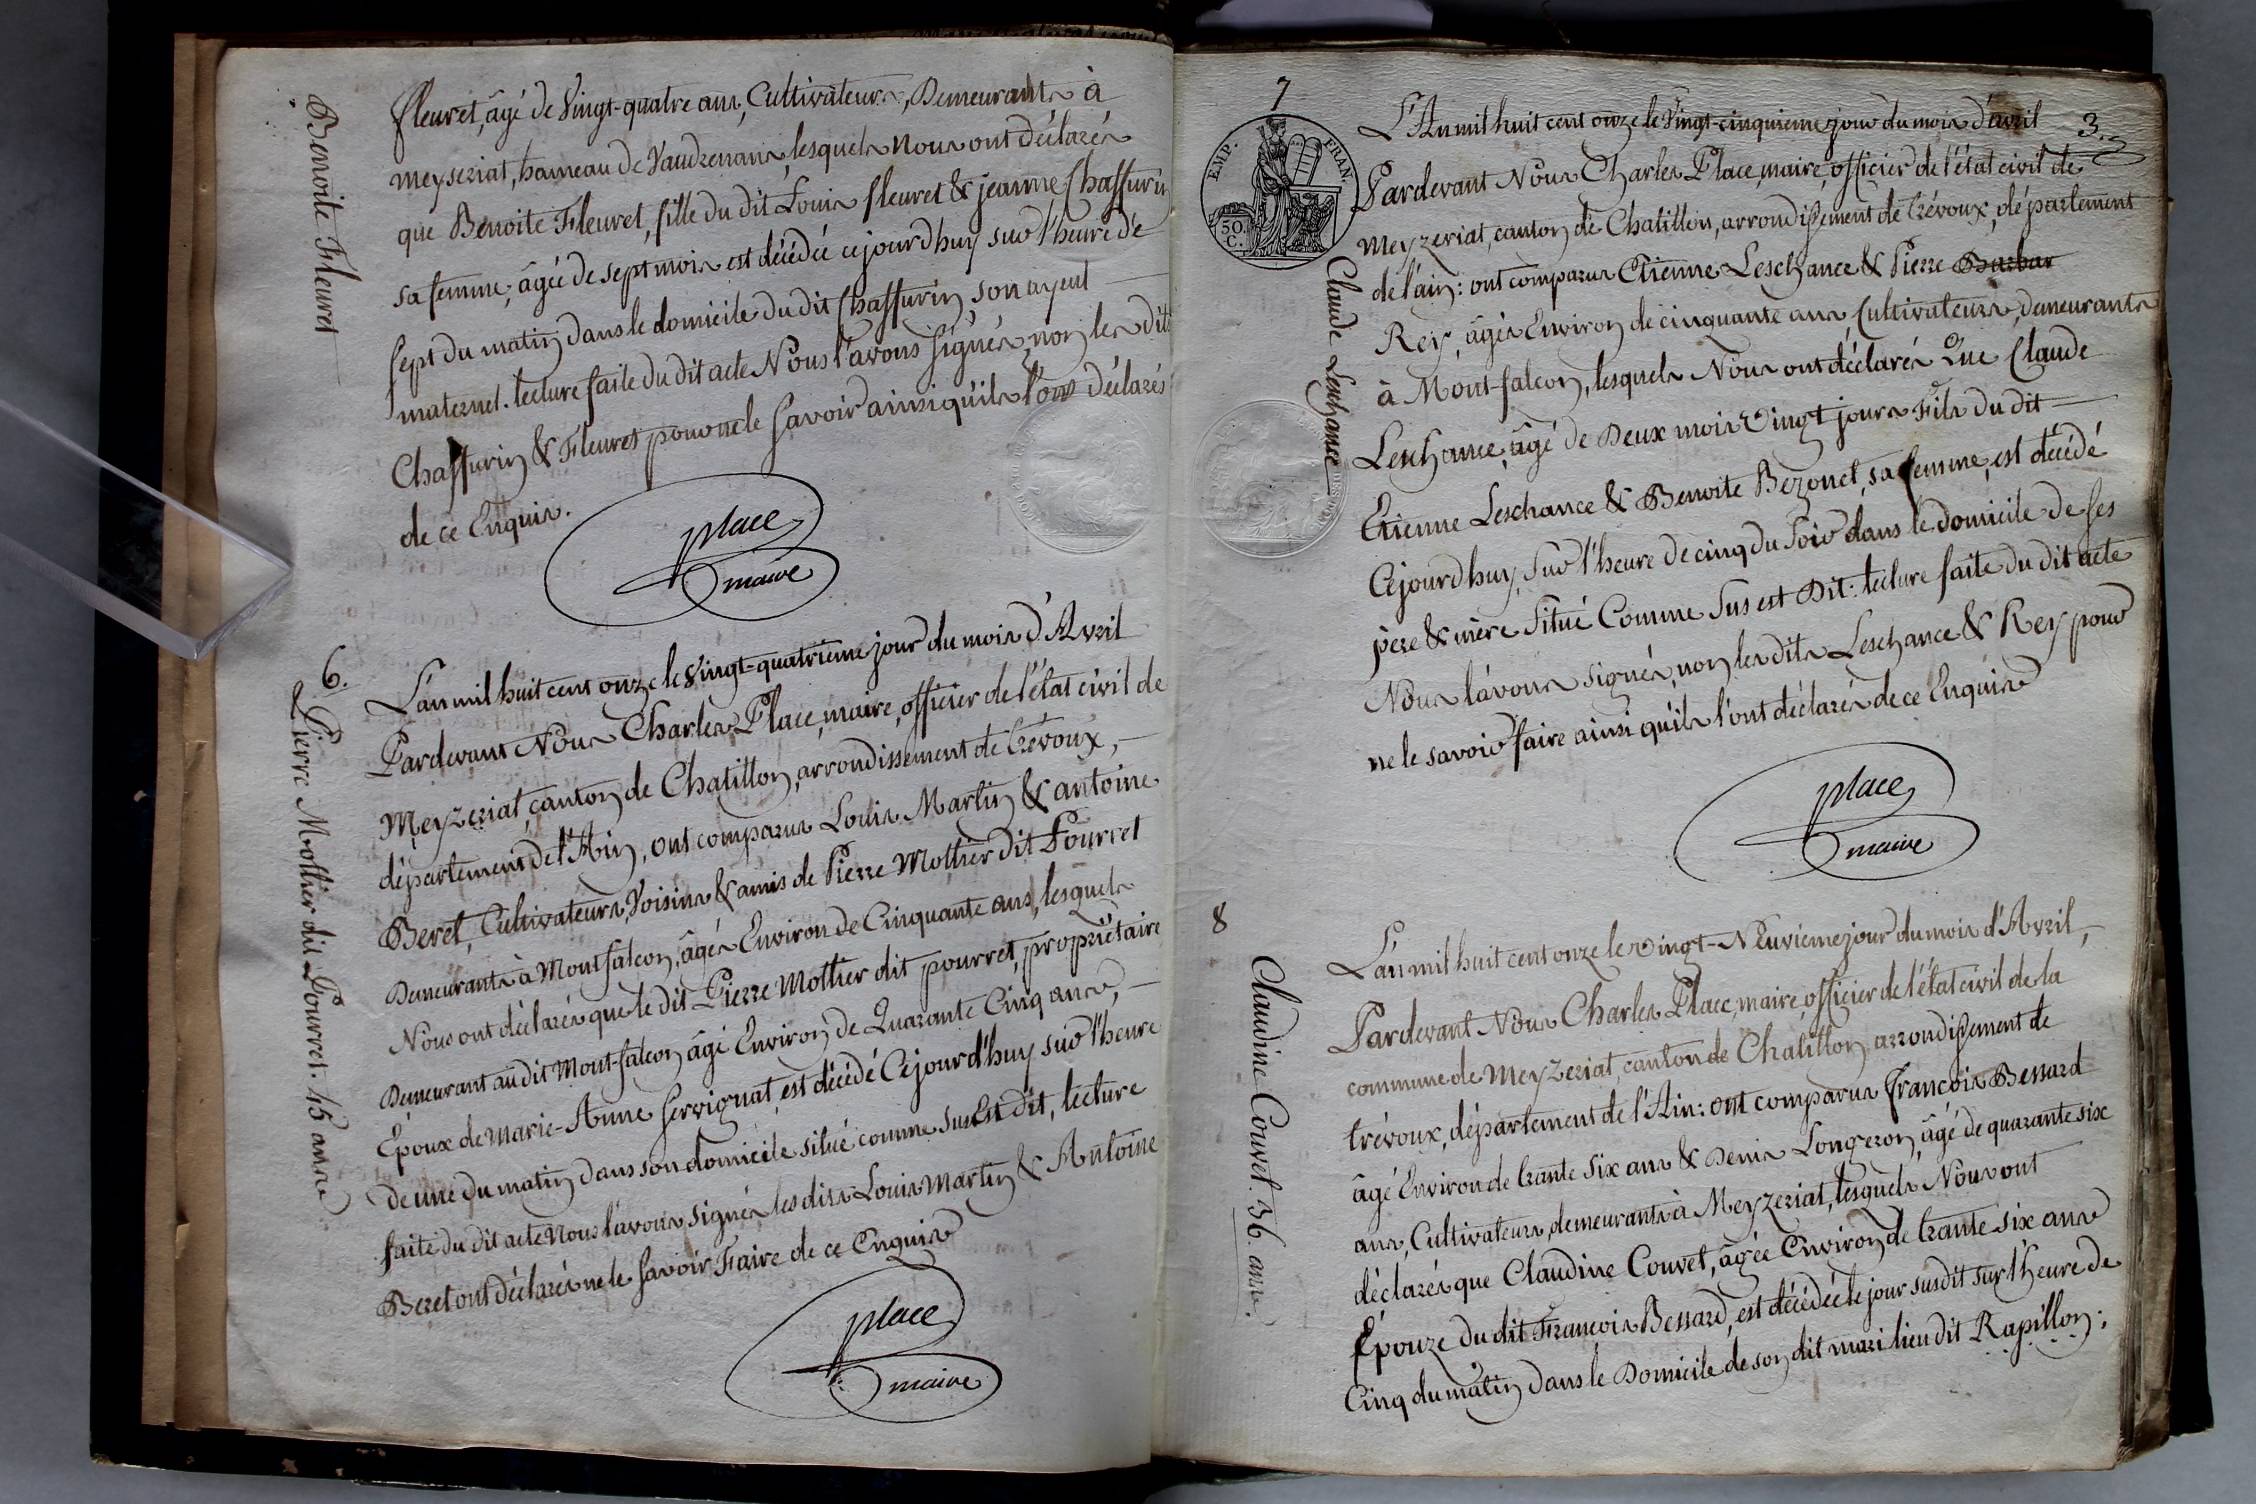 Benoite Fleuret
fleuret, âgé de Vingt-quatre ans, Cultivateurs, Demeurants à
meyseriat, hameau de Vaudrenans, lesquels Nous ont déclarés
que Benoite Fleuret, fille du dit Louis fleuret & jeanne Chaffurin
sa femme; âgée de sept mois est décédée cejourdhuy sur l'heure de
sept du matin dans le domicile du dit Chaffurin, son ayeul
maternel. lecture faite du dit acte Nous l'avons signés, non les dits
Chaffurin & Fleuret pour ne le savoir ainsi qu'ils l'ont déclarés
de ce Enquis.
place
maire
6.
Pierre Mottier dit Pourret. 45 ans
L'an mil huit cent onze le Vingt-quatrieme jour du mois d'Avril
Pardevant Nous Charles Place, maire, officier de l'état civil de
Meyzeriat, canton de Chatillon, arrondissement de trévoux,
département de l'Ain, ont comparus Louis Martin & antoine
Beret, Cultivateurs, Voisins & amis de Pierre Mottier dit Pourret
Demeurants à Montfalcon, âgés Environ de Cinquante ans, lesquels
Nous ont déclarés que le dit Pierre Mottier dit pourret, propriètaire
Demeurant au dit Mont-falcon âgé Environ de Quarante Cinq ans,
Epoux de Marie-Anne Servignat, est décédé Cejourd'huy sur l'heure
de une du matin dans son domicile situé comme sus Est dit, lecture
faite du dit acte Nous l'avons signés les dits Louis Martin & Antoine
Beret ont déclarés ne le savoir Faire de ce Enquis
place
maire
7
3.
EMP. FRAN.
50.
C.
Claude Leschance
L'An mil huit cent onze le Vingt-cinquieme jour du mois d'avril
Pardevant Nous Charles Place, maire, officier de l'état civil de
Meyzeriat, canton de Chatillon, arrondissement de trévoux, département
de l'ain: ont comparus Etienne Leschance & Pierre Barbar
Rey, âgés Environ de cinquante ans, Cultivateurs, demeurants
à Mont-falcon, lesquels Nous ont déclarés Que Claude
Leschance, âgé de Deux mois Vingt jours Fils du dit
Etienne Leschance & Benoite Bezonet, sa femme, est décédé
Cejourdhuy, sur l'heure de cinq du soir dans le domicile de ses
père & mère situé Comme sus est Dit: lecture faite du dit acte
Nous l'avons signés, non les dits Leschance & Rey pour
ne le savoir faire ainsi qu'ils l'ont déclarés de ce Enquis
place
maire
8
Claudine Couvet. 36 ans.
L'an mil huit cent onze le vingt-Neuvieme jour du mois d'Avril,
Pardevant Nous Charles Place, maire, officier de l'état civil de la
commune de Meyzeriat, canton de Chatillon, arrondissement de
trévoux, département de l'Ain: ont comparus francois Bessard
âgé Environ de trante six ans & Denis Longeron, âgé de quarante six
ans, Cultivateurs, demeurants à Meyzeriat, lesquels Nous ont
déclarés que Claudine Couvet, âgée Environ de trante six ans
Epouze du dit Francois Bessard, est décédée le jour susdit sur l'heure de
Cinq du matin dans le Domicile de son dit mari lieu dit Rapillon;